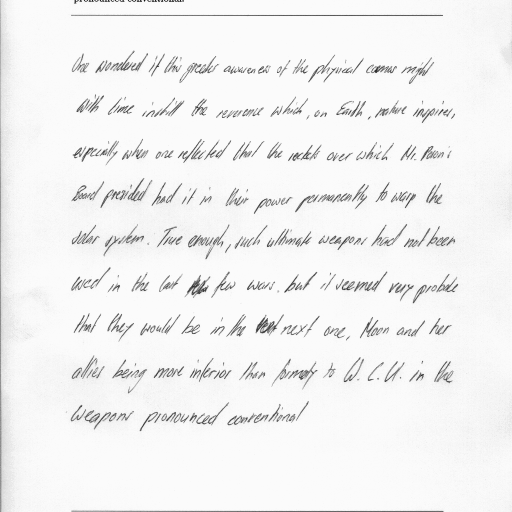 pronounced conventional.
One wondered if this greater awareness of the physical cosmos might
with time instill the reverence which, on Earth, nature inspires,
especially when one reflected that the rockets over which Mr. Pason's
Board presided had it in their power permanently to warp the
solar system. True enough, such ultimate weapons had not been
used in the last few wars, but it seemed very probable
that they would be in the next one, Moon and her
allies being more inferior than formerly to W. C. U. in the
weapons pronounced conventional